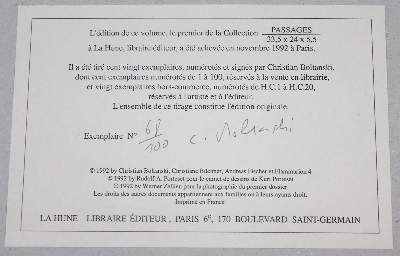 L'édition de ce volume, le premier de la Collection PASSAGES
33,5 x 24 x 5,5
à La Hune, libraire éditeur, a été achevée en novembre 1992 à Paris.
Il a été tiré cent vingt exemplaires, numérotés et signés par Christian Boltanski,
dont cent exemplaires numérotés de 1 à 100, réservés à la vente en librairie,
et vingt exemplaires hors-commerce, numérotés de H.C.1 à H.C.20,
réservés à l'artiste et à l'éditeur.
L'ensemble de ce tirage constitue l'édition originale.
Exemplaire N° /100 C. Boltanski
© 1992 by Christian Boltanski, Andreas Fischer et Flammarion 4
© 1992 by Rudolf A. pour le carnet de dessins de Kurt
© 1992 by Werner pour la photographie du premier dossier
Les droits des autres documents appartiennent aux familles ou à leurs ayants droit.
Imprimé en France
LA HUNE LIBRAIRE ÉDITEUR, PARIS 6E, 170 BOULEVARD SAINT-GERMAIN